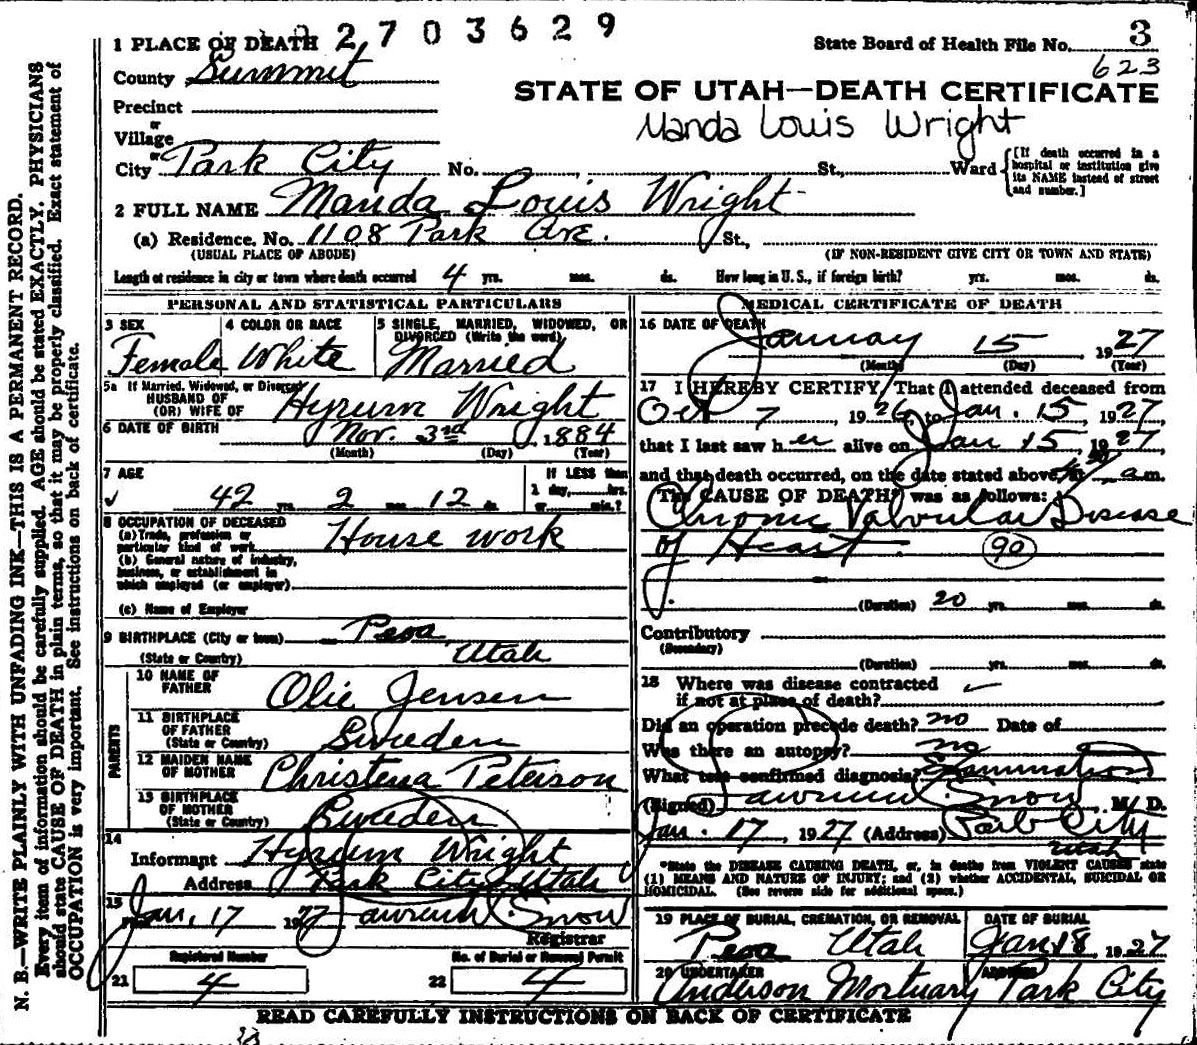 2703629
3
623
1 PLACE OF DEATH
State Board of Health File No.
County Summit
STATE OF UTAH—DEATH CERTIFICATE
Manda Louis Wright
Precinct
or
Village
or
City Park City No. , St., Ward
[If death occurred in a hospital or institution give its NAME instead of street and number.]
2 FULL NAME Manda Louis Wright
(a) Residence, No. 1108 Park Ave. St.,
(USUAL PLACE OF ABODE) (IF NON-RESIDENT GIVE CITY OR TOWN AND STATE)
Length of residence in city or town where death occurred 4 yrs. mos. ds. How long in U. S., if foreign birth? yrs. mos. ds.
PERSONAL AND STATISTICAL PARTICULARS
3 SEX
Female
4 COLOR OR RACE
White
5 SINGLE, MARRIED, WIDOWED, OR DIVORCED (Write the word)
Married
5a If Married, Widowed, or Divorced
HUSBAND OF
(OR) WIFE OF Hyrum Wright
6 DATE OF BIRTH Nov. 3rd, 1884
(Month) (Day) (Year)
7 AGE
42 yrs. 2 mos. 12 ds.
If LESS than
1 day, hrs.
or min.?
8 OCCUPATION OF DECEASED
(a) Trade, profession or particular kind of work House work
(b) General nature of industry, business, or establishment in which employed (or employer)
(c) Name of Employer
9 BIRTHPLACE (City or town) Peoa
(State or Country) Utah
PARENTS
10 NAME OF FATHER Olie Jensen
11 BIRTHPLACE OF FATHER
(State or Country) Sweden
12 MAIDEN NAME OF MOTHER Christena Peterson
13 BIRTHPLACE OF MOTHER
(State or Country) Sweden
14
Informant Hyrum Wright
Address Park City Utah
15
Jan, 17 1927 Lawrence C. Snow
Registrar
Registered Number
21 4
No. of Burial or Removal Permit
22 4
MEDICAL CERTIFICATE OF DEATH
16 DATE OF DEATH
January 15, 1927
(Month) (Day) (Year)
17 I HEREBY CERTIFY, That I attended deceased from
Oct 7, 1926, to Jan. 15, 1927,
that I last saw her alive on Jan 15, 1927,
and that death occurred, on the date stated above, at a.m.
The CAUSE OF DEATH* was as follows:
Chronic Valvular Disease
of Heart. 90
(Duration) 20 yrs. mos. ds.
Contributory
(Secondary)
(Duration) yrs. mos. ds.
18 Where was disease contracted
if not at place of death?
Did an operation precede death? no Date of
Was there an autopsy? no
What test confirmed diagnosis? Examination
(Signed) Lawrence C. Snow, M. D.
Jan. 17, 1927 (Address) Park City
Utah
*State the DISEASE CAUSING DEATH, or, in deaths from VIOLENT CAUSES state
(1) MEANS AND NATURE OF INJURY; and (2) whether ACCIDENTAL, SUICIDAL OR
HOMICIDAL. (See reverse side for additional space.)
19 PLACE OF BURIAL, CREMATION, OR REMOVAL
Peoa Utah
DATE OF BURIAL
Jan. 18, 1927
20 UNDERTAKER
Anderson Mortuary
ADDRESS
Park City
READ CAREFULLY INSTRUCTIONS ON BACK OF CERTIFICATE
N. B.—WRITE PLAINLY WITH UNFADING INK—THIS IS A PERMANENT RECORD.
Every item of information should be carefully supplied. AGE should be stated EXACTLY. PHYSICIANS
should state CAUSE OF DEATH in plain terms, so that it may be properly classified. Exact statement of
OCCUPATION is very important. See instructions on back of certificate.